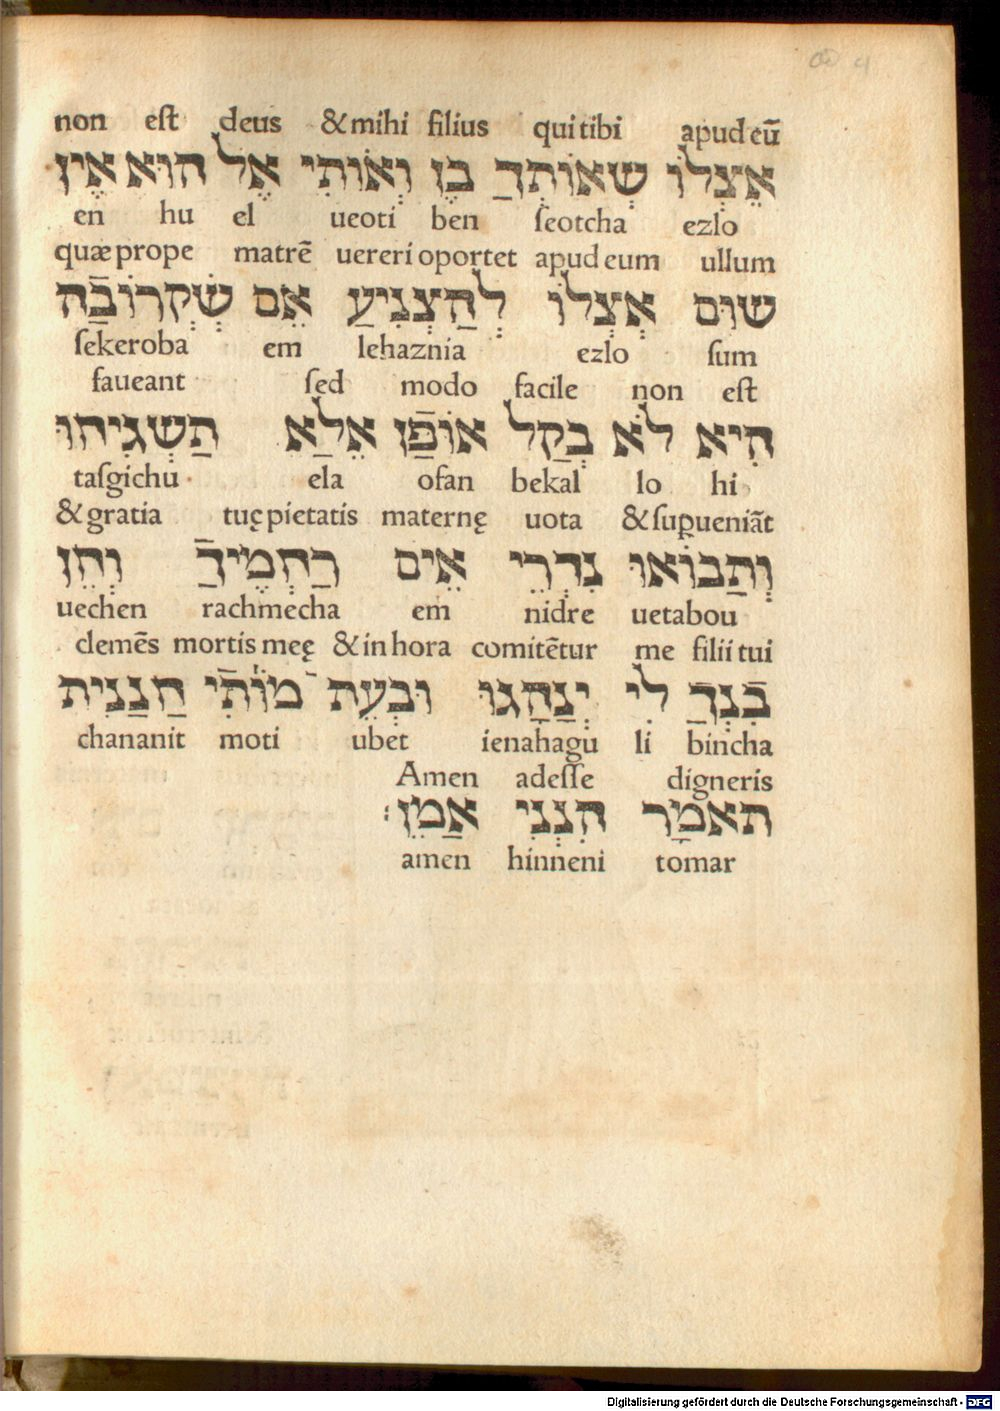 non est deus & mihi filius qui tibi apud eū
אֶצְלוֹ שְׁאוֹתְךַ בֶן וְאוֹתִי אֶל הוּא אֶין
en hu el ueoti ben ſeotcha ezlo
quæ prope matrē uereri oportet apud eum ullum
שׂוּם אְצְלוֹ לְהַצְנִיעַ אֵם שְׁקְרוֹבָה
ſekeroba em lehaznia ezlo ſum
faueant ſed modo facile non eſt
הִיא לֹא בְקַל אוֹפַן אֵלַא תַשְׂגִיחוּ
taſgichu ela ofan bekal lo hi
& gratia tuę pietatis maternę uota & ſuꝑueniāt
וְתַבוֹאוּ נִדְרֵי אֵים רַחְמֶיךַ וְחֵן
uechen rachmecha em nidre uetabou
clemēs mortis meę & in hora comitētur me filii tui
בִנְךַ לִי יְנַהָגוּ וּבְעֵת מוֹתִי חַנַנִית
chananit moti ubet ienahagu li bincha
Amen adeſſe digneris
תאֹמָר הִנְנִי אַמֵן:
amen hinneni tomar
Digitalisierung gefördert durch die Deutsche Forschungsgemeinschaft - DFG